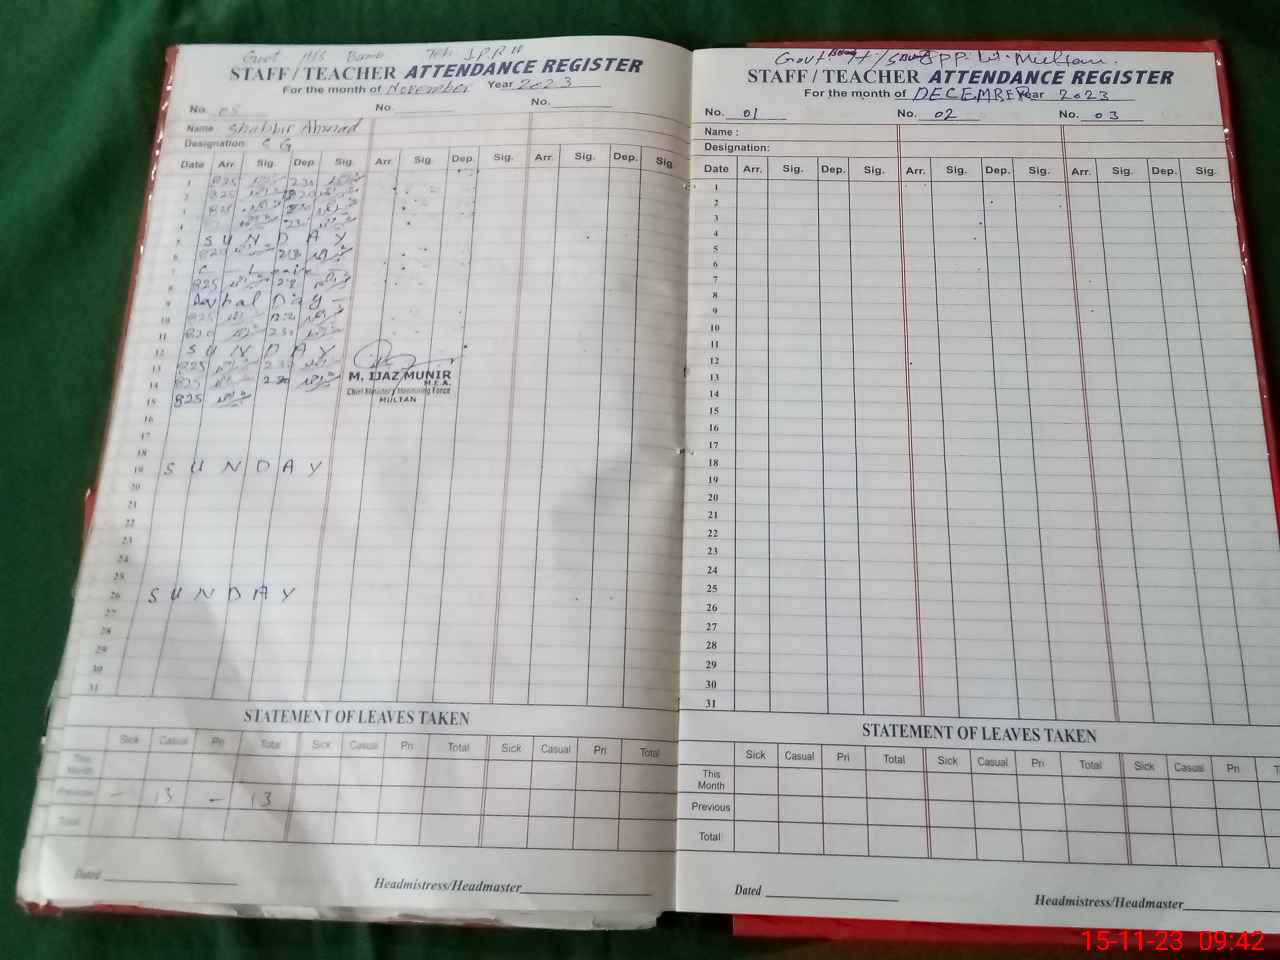 Govt H/S
STAFF / TEACHER ATTENDANCE REGISTER
For the month of November Year 2023
No. 05 No. No.
Name : Shabbir Ahmad
Designation S G
Date Arr. Sig. Dep. Sig. Arr. Sig. Dep. Sig. Arr. Sig. Dep. Sig.
1 825 230
2 825
3 825 230
4 230
5 SUNDAY
6 825 230
7
8 825 23
9 Day
10 825
11 820 230
12 SUNDAY
13 825 230
14 825 230
15 825
M. IJAZ MUNIR
M.E.A.
Chief Minister's Monitoring Force
MULTAN
16
17
18
19 SUNDAY
20
21
22
23
24
25
26 SUNDAY
27
28
29
30
31
STATEMENT OF LEAVES TAKEN
Sick Casual Pri Total Sick Casual Pri Total Sick Casual Pri Total
This Month
Previous - 13 - 13
Total
Dated
Headmistress/Headmaster
Govt. H/S Multan.
STAFF / TEACHER ATTENDANCE REGISTER
For the month of DECEMBER Year 2023
No. 01 No. 02 No. 03
Name :
Designation:
Date Arr. Sig. Dep. Sig. Arr. Sig. Dep. Sig. Arr. Sig. Dep. Sig.
1
2
3
4
5
6
7
8
9
10
11
12
13
14
15
16
17
18
19
20
21
22
23
24
25
26
27
28
29
30
31
STATEMENT OF LEAVES TAKEN
Sick Casual Pri Total Sick Casual Pri Total Sick Casual Pri T
This Month
Previous
Total
Dated
Headmistress/Headmaster
15-11-23 09:42